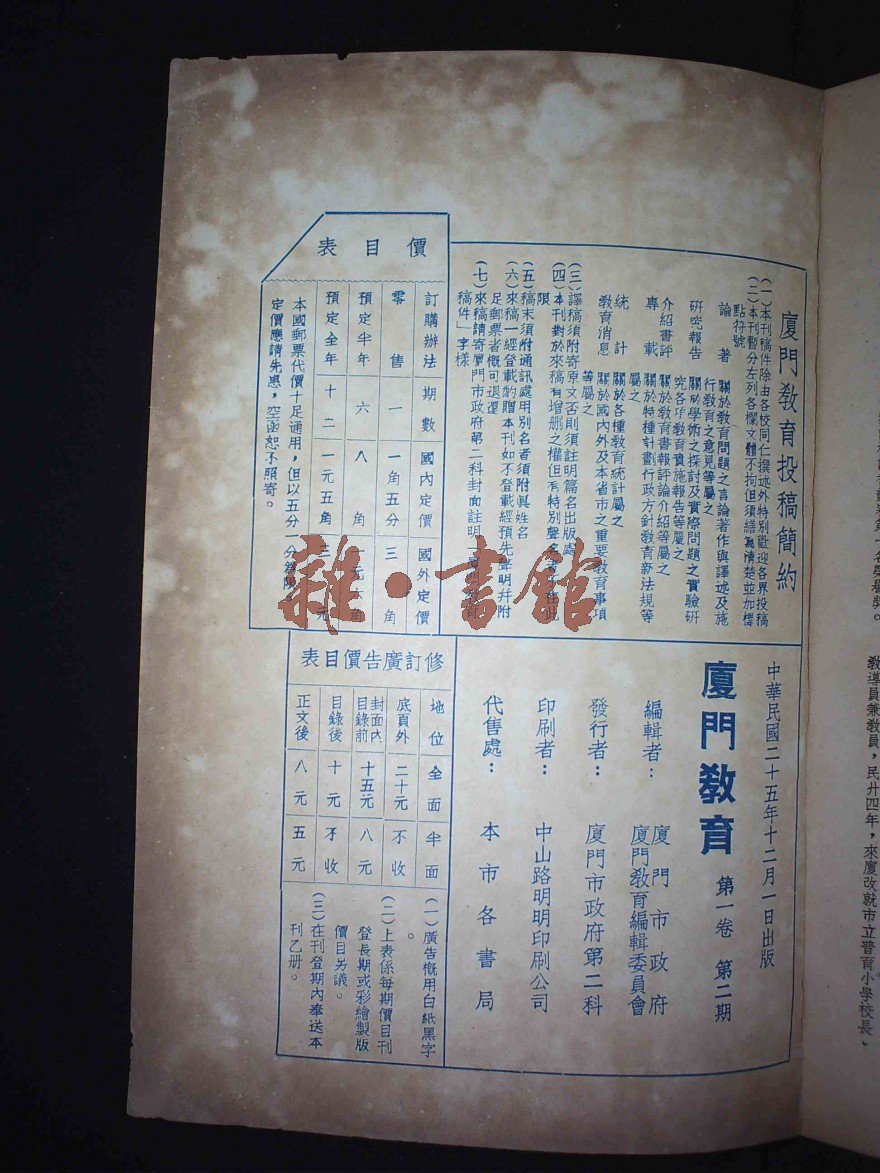 廈門教育投稿簡約
(一)本刊稿件除由各校同仁撰述外特別歡迎各界投稿
(二)本刊暫分左列各欄文體不拘但須繕寫清楚並加標
點符號
論著 關於教育問題之言論著作與譯述及施
行教育之意見等屬之
研究報告 關於學術之探討及實際問題之實驗研
究各年教育實施報告等屬之
介紹書評 關於教育書報評論介紹等屬之
專載 關於特種計劃行政方針教育新法規等
屬之
統計 關於各種教育統計屬之
教育消息 關於國內外及本省市之重要教育事項
等屬之
(三)譯稿須附寄原文否則須註明篇名出版處
(四)本刊對於來稿有增刪之權但有特別聲名者不在此
限
(五)稿末須附通訊處用別名者須附真姓名
(六)來稿一經登載酌贈本刊如不登載經預先聲明幷附
足郵票者概可退還
(七)來稿請寄廈門市政府第二科封面註明
稿件」字樣
價目表
訂購辦法 期數 國內定價 國外定價
零售 一 一角五分 三角
預定半年 六 八角 一元六角
預定全年 十二 一元五角 三元
本國郵票代價十足通用,但以五分一分爲限
定價應請先惠,空函恕不照寄。
中華民國二十五年十二月一日出版
廈門教育 第一卷 第二期
編輯者: 廈門市政府
廈門教育編輯委員會
發行者: 廈門市政府第二科
印刷者: 中山路明明印刷公司
代售處: 本市各書局
修訂廣告價目表
地位 全面 半面
底頁外 二十元 不收
封面內
目錄前 十五元 八元
目錄後 十元 不收
正文後 八元 五元
(一)廣告概用白紙黑字
。
(二)上表係每期價目刊
登長期或彩繪製版
價目另議。
(三)在刊登期內奉送本
刊乙册。
教導員兼教員,民廿四年,來廈改就市立普育小學校長、
雜·書館